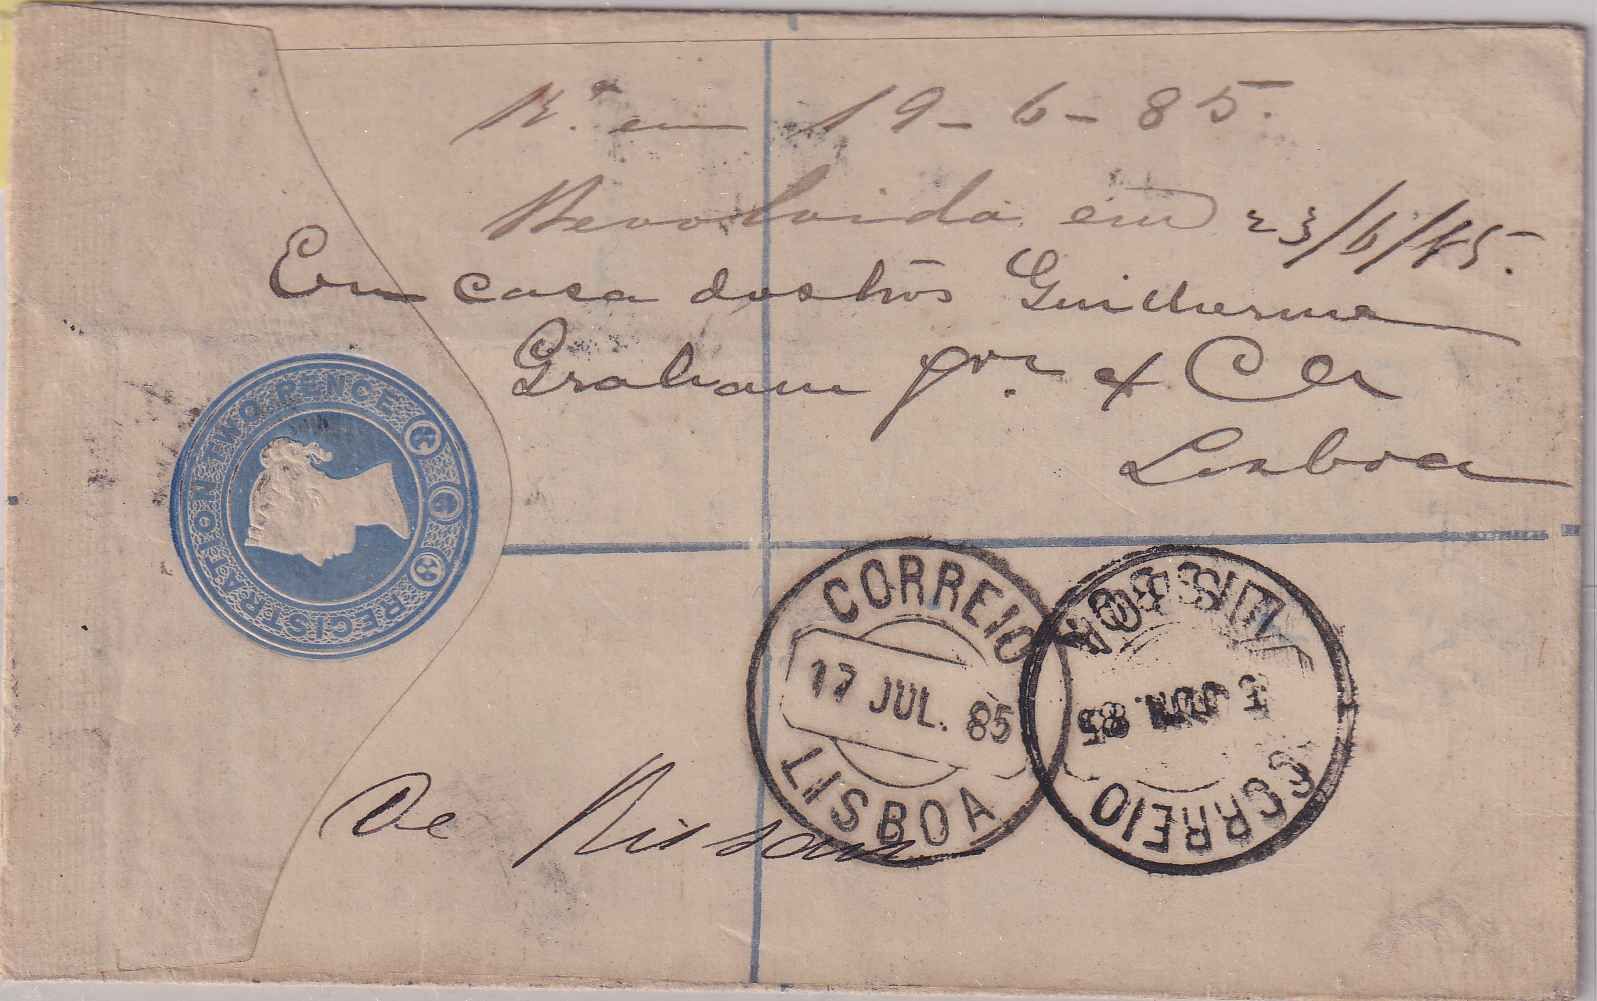 R.ª em 19-6-85.
Devolvida em 23/6/85.
Em casa dos Snrs Guilherme
Graham Jor. & Ca
Lisboa
REGISTRATION TWO PENCE
CORREIO
17 JUL. 85
LISBOA
LISBOA
5 JUN. 85
CORREIO
De